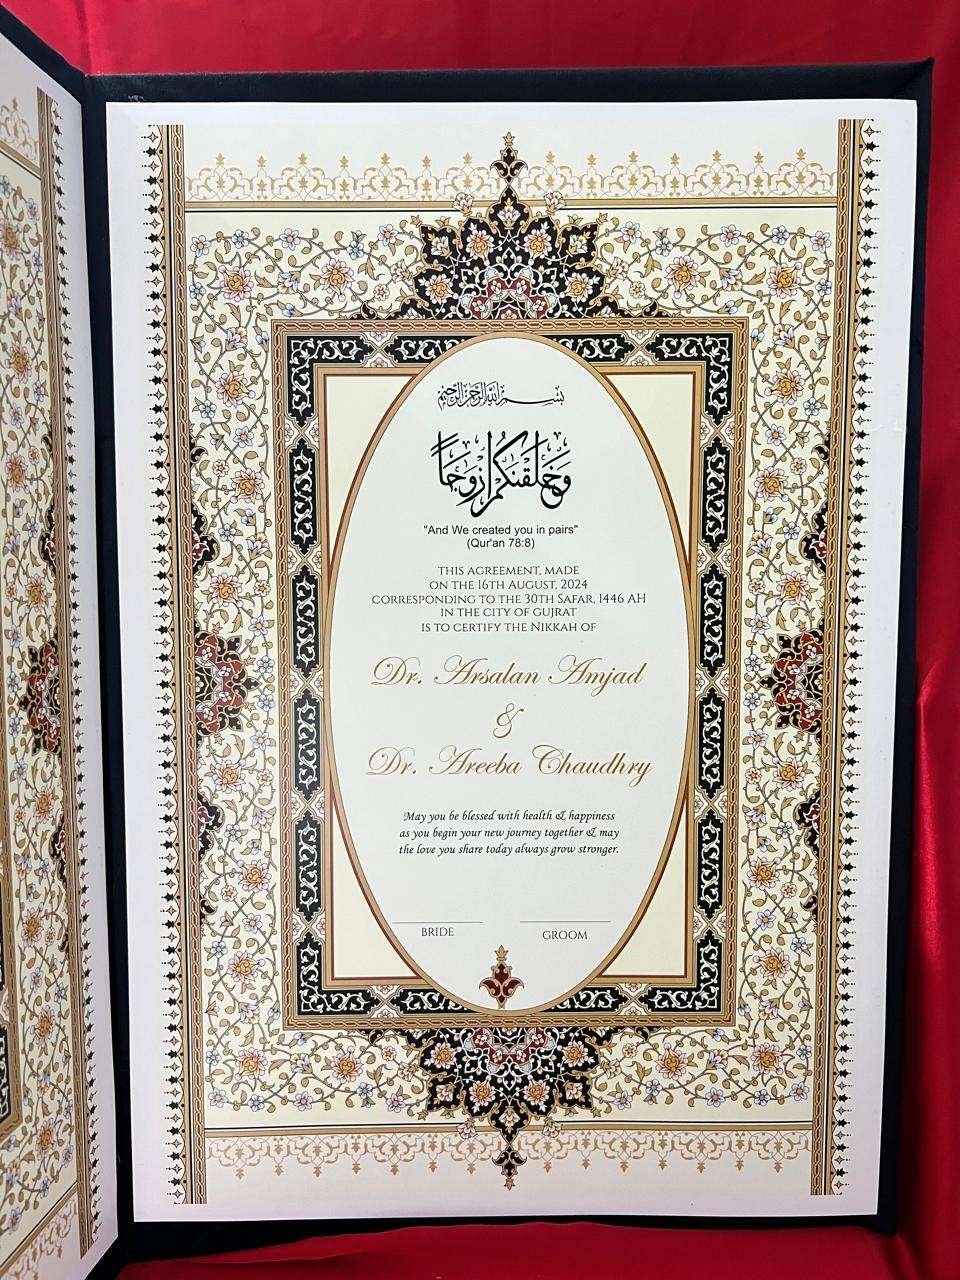 بسم الله الرحمن الرحيم
وخلقنكم ازوجا
"And We created you in pairs"
(Qur'an 78:8)
THIS AGREEMENT, MADE
ON THE 16TH AUGUST, 2024
CORRESPONDING TO THE 30TH SAFAR, 1446 AH
IN THE CITY OF GUJRAT
IS TO CERTIFY THE NIKKAH OF
Dr. Arsalan Amjad
&
Dr. Areeba Chaudhry
May you be blessed with health & happiness
as you begin your new journey together & may
the love you share today always grow stronger.
BRIDE GROOM